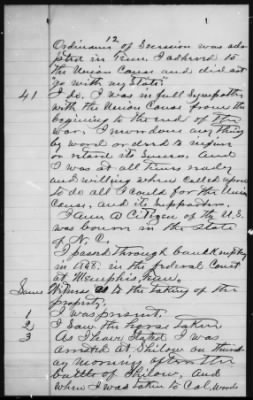 12
Ordinance of Secession was ado
pted in Tenn. I adhered to
the Union Cause and did not
go with my State.
41 I do. I was in full Sympathy
with the Union Cause from the
beginning to the end of the
War. I never done anything
by word or deed to injure
or retard its success. And
I was at all times ready
and willing when called upon
to do all I could for the Union
Cause, and its supporters.
I am a Citizen of the U.S.
was bourn in the State
of N.C.
I passed through bankruptcy
in 1868, in the Federal Court
at Memphis, Tenn.
Same Witness as to the taking of the
property.
1 I was present.
2 I saw the horse taken
3 As I have stated I was
arrested at Shilow on thurs
day morning after the
battle of Shilow, and
when I was taken to Col.